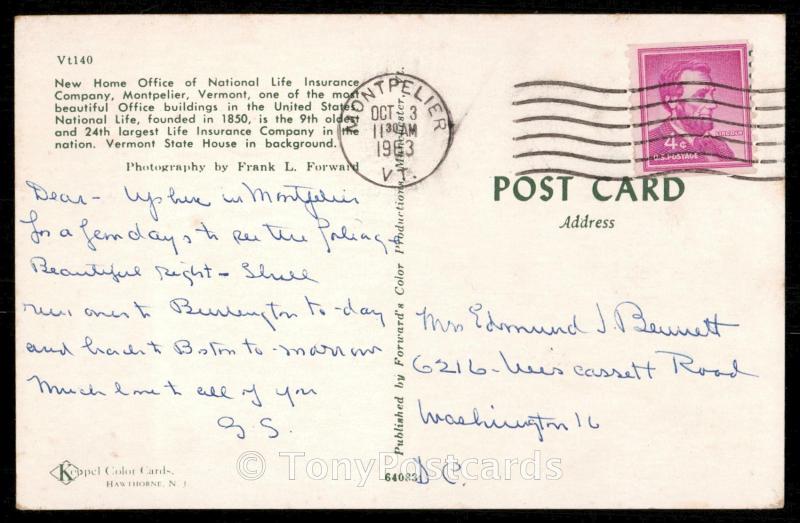 Vt140
New Home Office of National Life Insurance
Company, Montpelier, Vermont, one of the most
beautiful Office buildings in the United States.
National Life, founded in 1850, is the 9th oldest
and 24th largest Life Insurance Company in the
nation. Vermont State House in background.
Photography by Frank L. Forward
Dear - Up here in Montpelier
for a few days to see the foliage
Beautiful sight - Shall
run over to Burlington to-day
and back to Boston to-morrow
Much love to all of you
G.S.
Keppel Color Cards.
HAWTHORNE, N. J.
Published by Forward's Color Productions, Manchester, Vt.
64083
MONTPELIER
OCT 3
11 30 AM
1963
VT.
LINCOLN
4¢
U.S. POSTAGE
POST CARD
Address
Mrs Edmund J. Bennett
6216 - Wiscassett Road
Washington 16
D.C.
© TonyPostcards